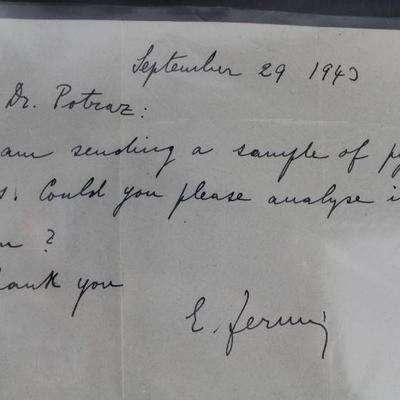 September 29 1943
Dr. Potraz:
am sending a sample of
s. Could you please analyse i
?
hank you
E. Fermi